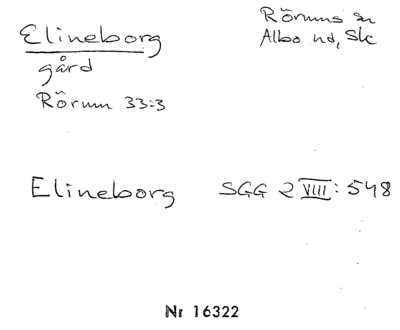 Elineborg
Rörums sn
Albo hd, Sk
gård
Rörum 33:3
Elineborg SGG 2 VIII: 548
Nr 16322